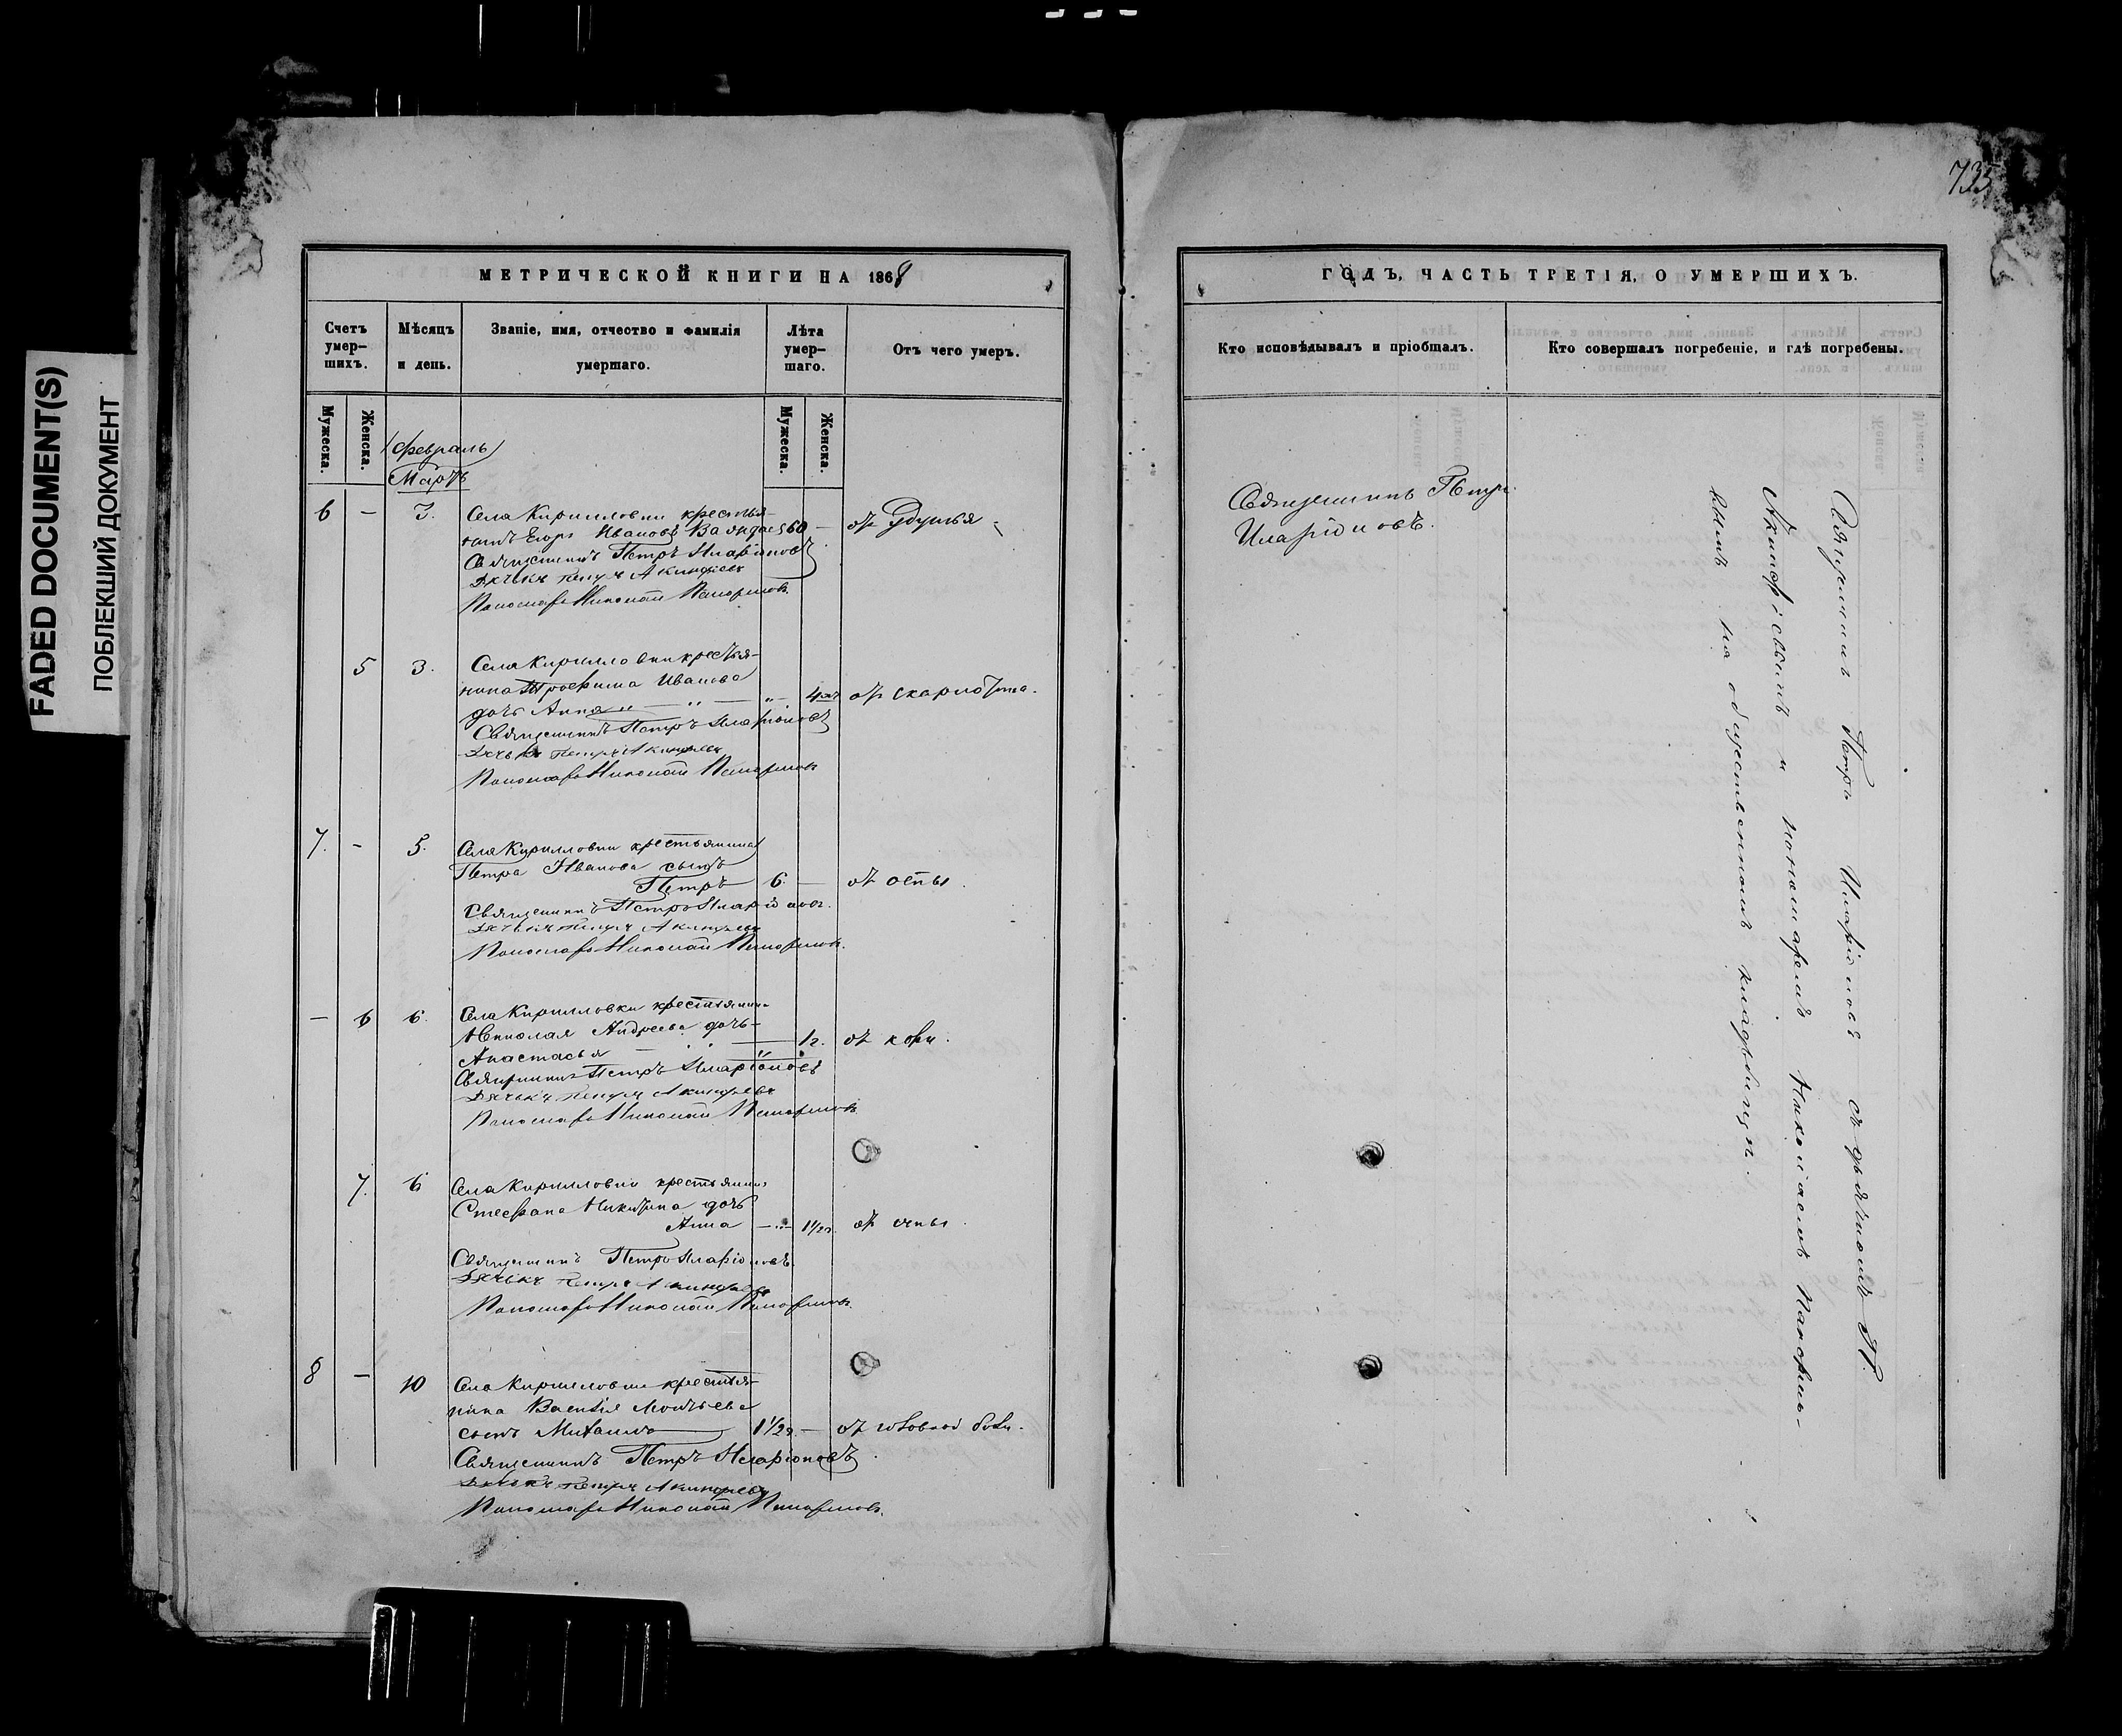 FADED DOCUMENT(S)
ПОБЛЕКШИЙ ДОКУМЕНТ
МЕТРИЧЕСКОЙ КНИГИ НА 1868
Счетъ умер-шихъ.
Мѣсяцъ и день.
Званіе, имя, отчество и фамилія умершаго.
Лѣта умер-шаго.
Отъ чего умеръ.
Мужеска.
Женска.
Мужеска.
Женска.
Февраль
Мартъ
6 - 3. Села Кирилловки крестья-
нинъ Егоръ Ивановъ 60 - отъ удушья
Священникъ Петръ Иларіоновъ
Дячькъ Петръ Акинфіевъ
Пономарь Николай
5 3. Села Кирилловки крестья-
нина Трофима Иванова
дочь Анна 4 отъ скарлотина.
Священникъ Петръ Иларіоновъ
Дячькъ Петръ Акинфіевъ
Пономарь Николай
7. - 5. Села Кирилловки крестьянина
Петра Иванова сынъ
Петръ 6. - отъ оспы.
Священникъ Петръ Иларіоновъ.
Дячькъ Петръ Акинфіевъ
Пономарь Николай
- 6 6. Села Кирилловки крестьянина
Николая Андреева дочь
Анастасья 1г. отъ кори.
Священникъ Петръ Иларіоновъ
Дячькъ Петръ Акинфіевъ
Пономарь Николай
7. 6 Села Кирилловки крестьянина
Стефана Никитина дочь
Анна 1½г. отъ оспы.
Священникъ Петръ Иларіоновъ.
Дячькъ Петръ Акинфіевъ
Пономарь Николай
8 - 10 Села Кирилловки крестья-
нина Василія
сынъ Михаилъ 1½г. - отъ головной боли.
Священникъ Петръ Иларіоновъ.
Дячькъ Петръ Акинфіевъ
Пономарь Николай
735
ГОДЪ, ЧАСТЬ ТРЕТІЯ, О УМЕРШИХЪ.
Кто исповѣдывалъ и пріобщалъ.
Кто совершалъ погребеніе, и гдѣ погребены.
Священникъ Петръ
Иларіоновъ.
Священникъ Петръ Иларіоновъ съ дьячкомъ П.
Акинфіевымъ и пономаремъ Николаемъ
на общественномъ кладбищѣ.